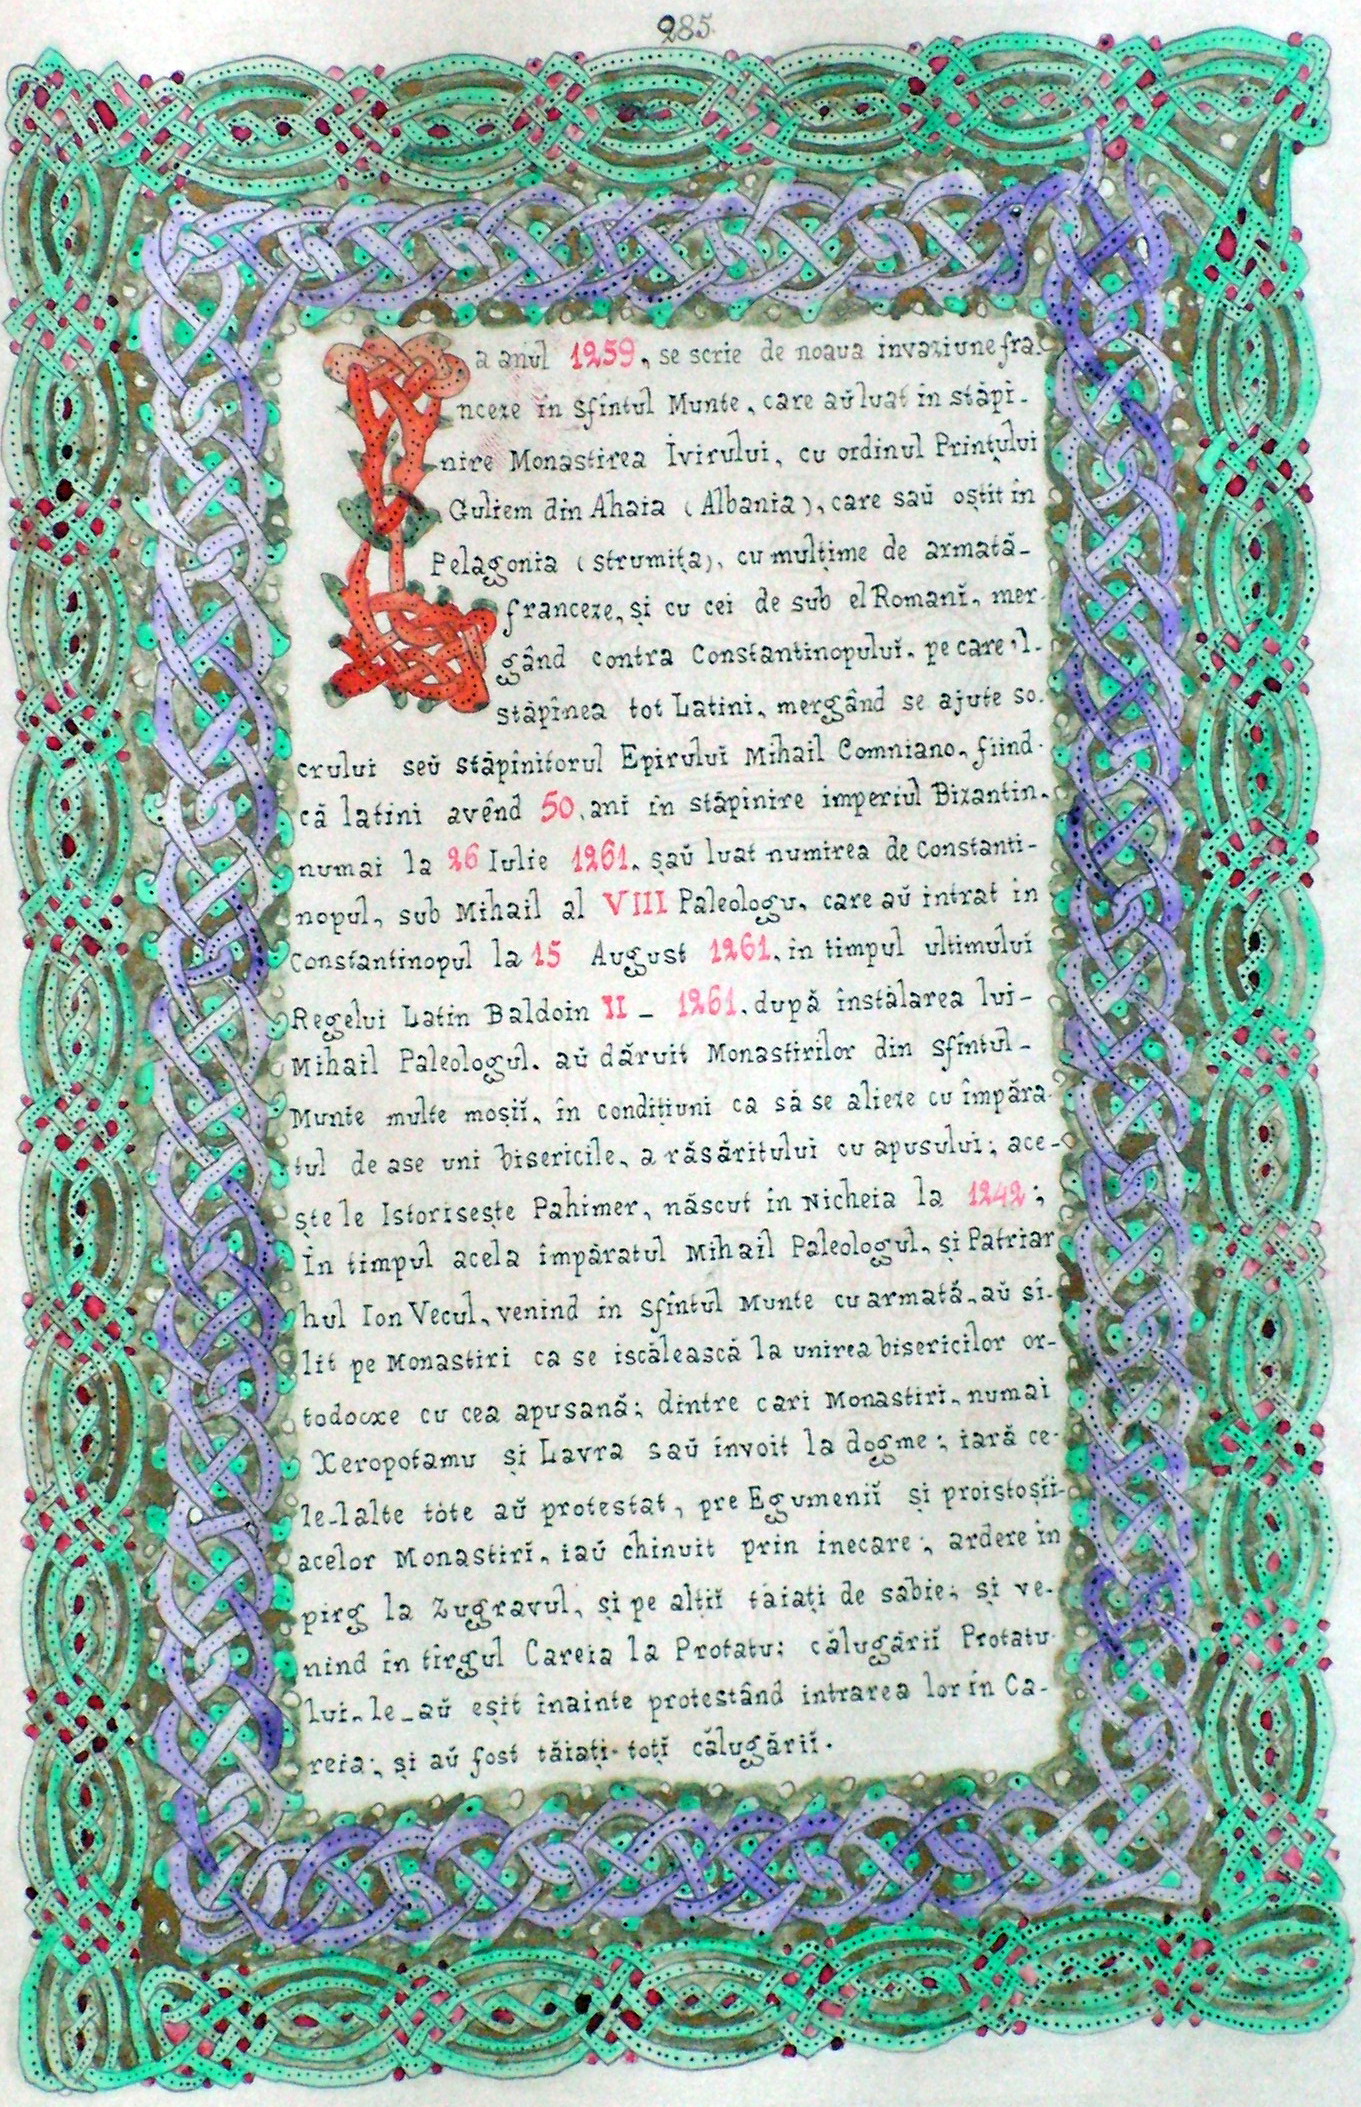 285.
La anul 1259, se scrie de noaua invaziune fra-
nceze în Sfîntul Munte, care aŭ luat in stăpi-
nire Monastirea Ivirului, cu ordinul Prințului
Guliem din Ahaia (Albania), care saŭ oștit în
Pelagonia (strumița), cu mulțime de armată-
franceze, și cu cei de sub el Romanĭ, mer-
gând contra Constantinopuluĭ, pe care'l-
stăpînea tot Latini, mergând se ajute so-
crului seŭ stăpînitorul Epiruluĭ Mihail Comniano, fiind-
că latini avênd 50, anĭ în stăpînire imperiul Bizantin,
numai la 26 Iulie 1261, saŭ luat numirea de Constanti-
nopul, sub Mihail al VIII Paleologu, care aŭ intrat in
Constantinopul la 15 August 1261, in timpul ultimuluĭ
Regelui Latin Baldoin II - 1261, după înstalarea lui-
Mihail Paleologul, aŭ dăruit Monastirilor din sfîntul-
Munte multe moșiĭ, în condițiuni ca să se alieze cu împăra-
tul de ase uni bisericile, a răsăritului cu apusului; ace-
ște le Istorisește Pahimer, născut în Nicheia la 1242;
În timpul acela împăratul Mihail Paleologul, și Patriar
hul Ion Vecul, venind în Sfîntul Munte cu armată, aŭ si-
lit pe Monastiri ca se iscălească la unirea bisericilor or-
todocxe cu cea apusană; dintre cari Monastiri, numai
Xeropotamu și Lavra saŭ învoit la dogme; iară ce-
le-lalte tóte aŭ protestat, pre Egumeniĭ și proistoșiĭ-
acelor Monastirĭ, iaŭ chinuit prin inecare; ardere in
pirg la Zugravul, și pe alțiĭ tăiați de sabie; și ve-
nind în tîrgul Careia la Protatu; călugăriĭ Protatu-
lui, le-aŭ eșit înainte protestând intrarea lor în Ca-
reia; și aŭ fost tăiați toțĭ călugăriĭ.